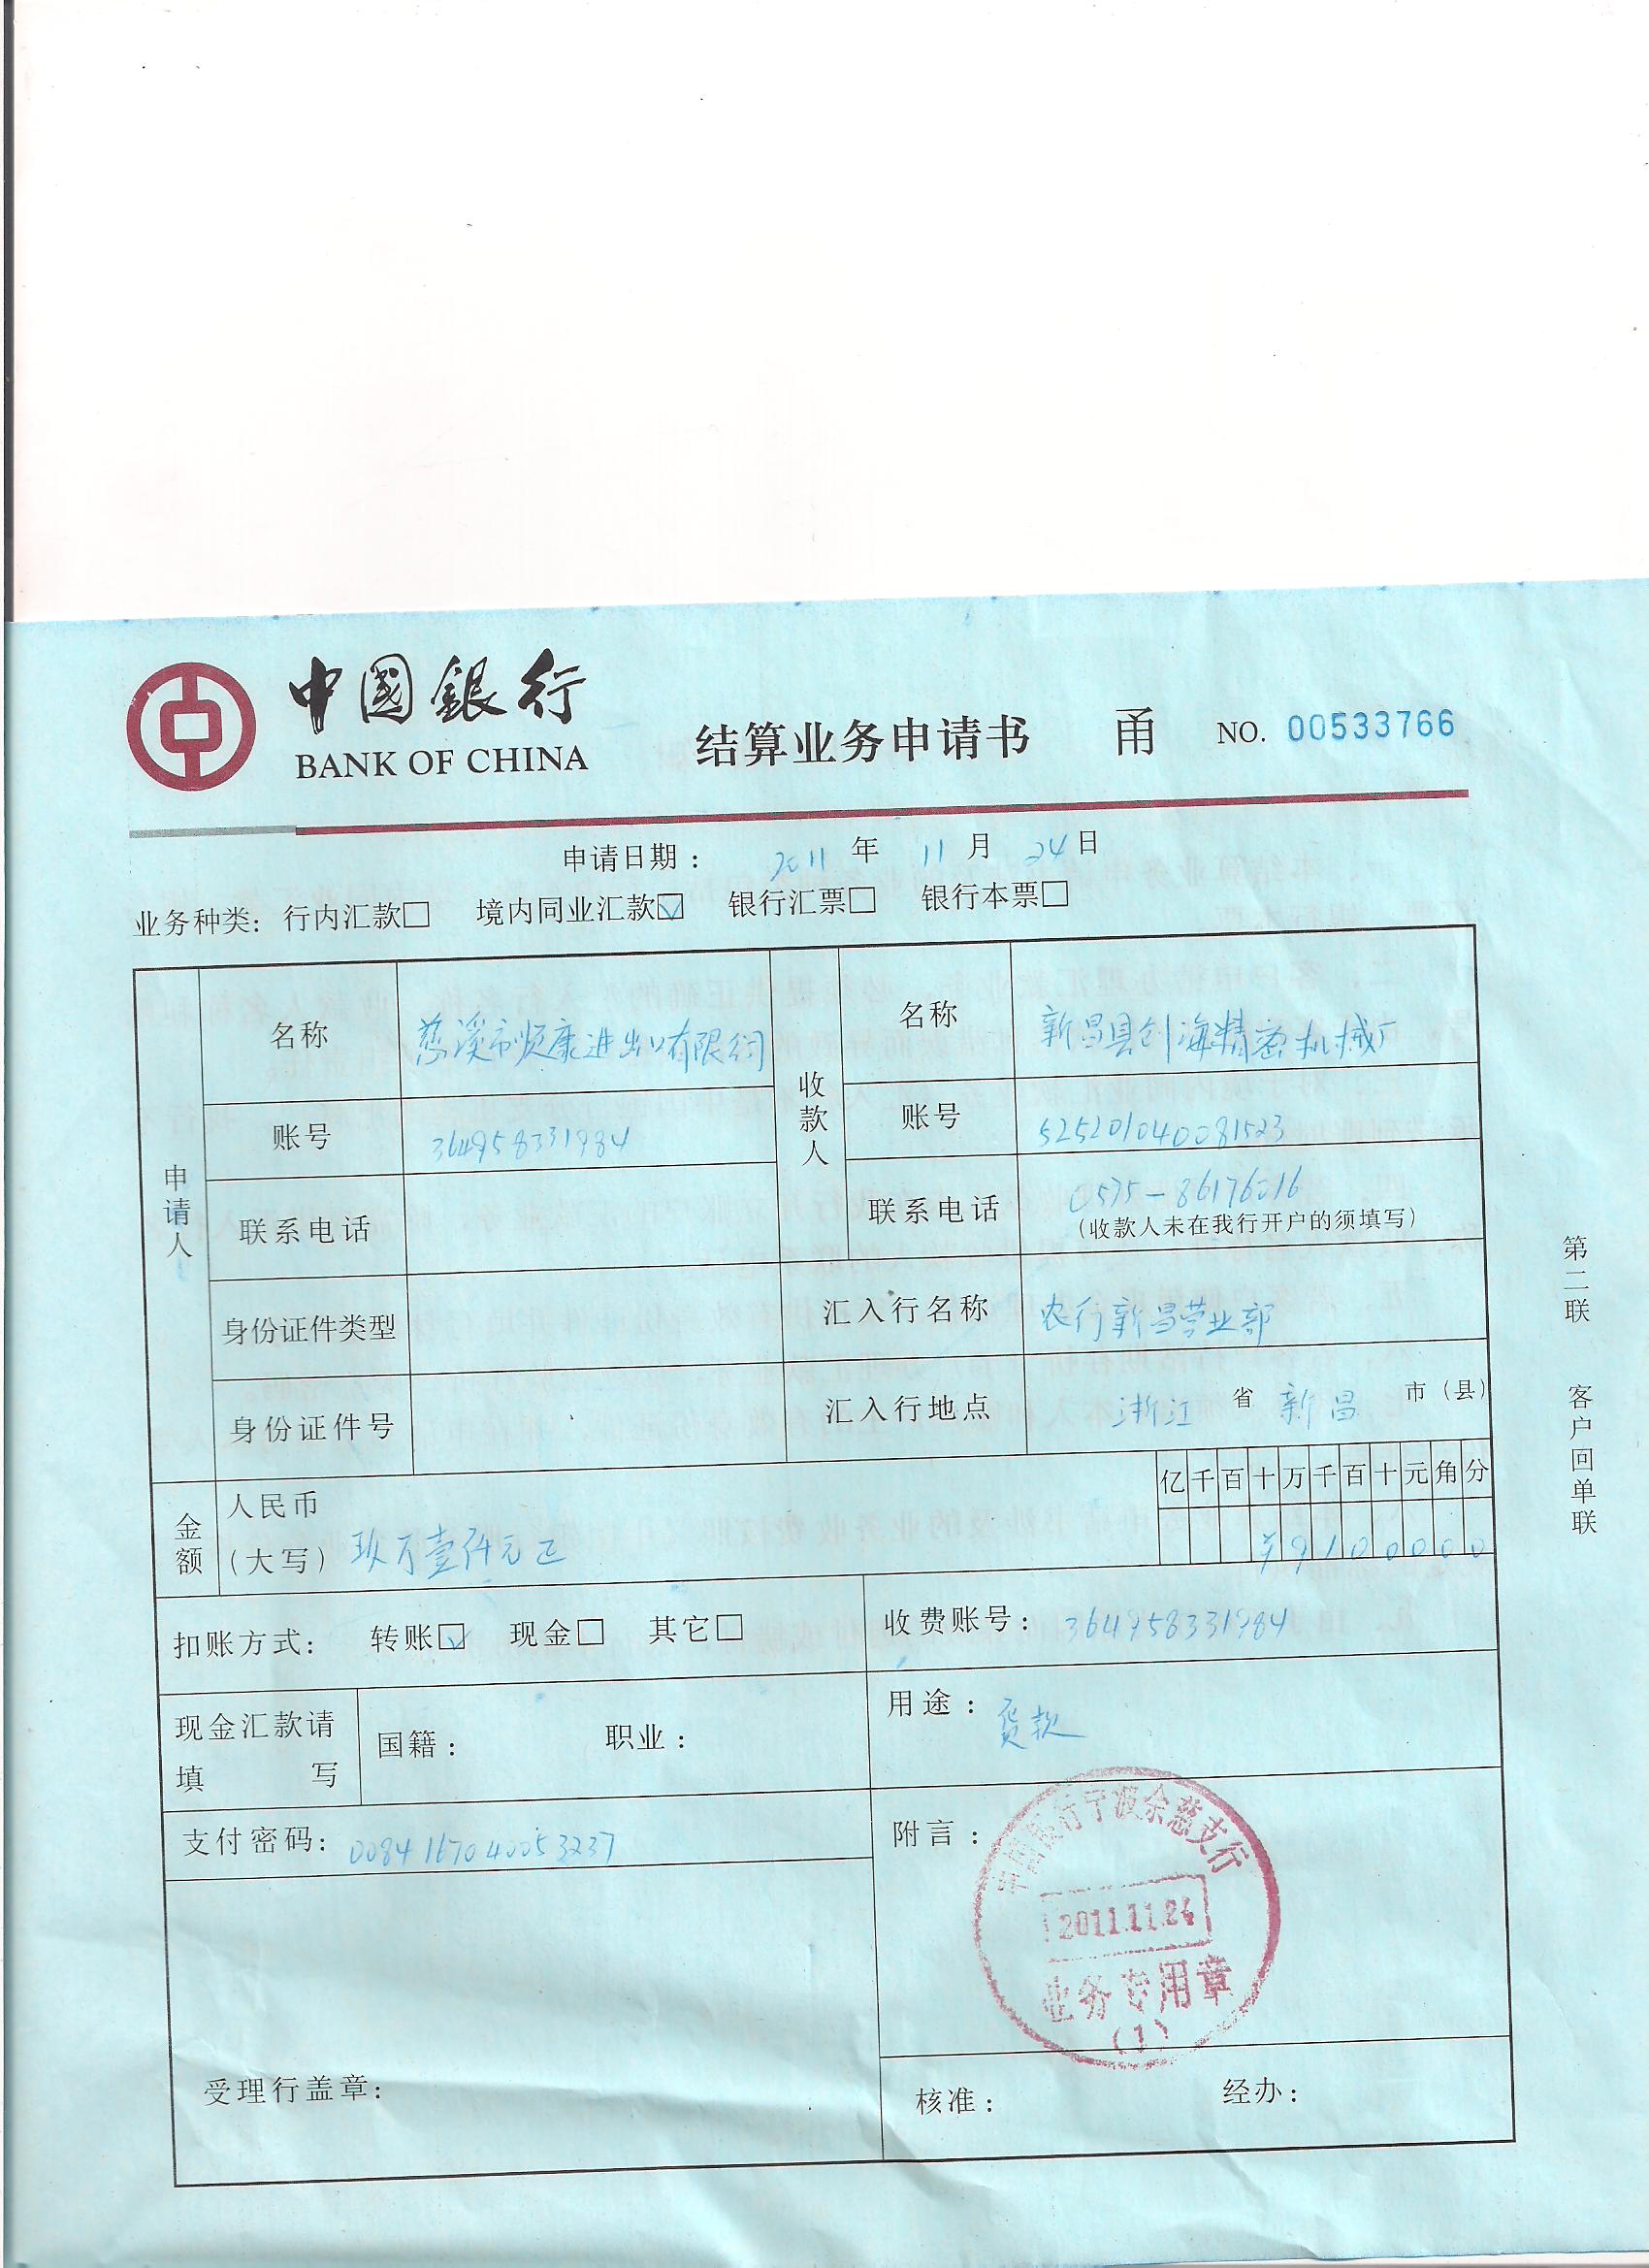 中國銀行
BANK OF CHINA
结算业务申请书 甬 NO. 00533766
申请日期： 2011 年 11 月 24 日
业务种类: 行内汇款□ 境内同业汇款☑ 银行汇票□ 银行本票□
申请人
名称 慈溪市顺康进出口有限公司
账号 364958331984
联系电话
身份证件类型
身份证件号
收款人
名称 新昌县创海精密机械厂
账号 525201040081523
联系电话 0575-86176016
(收款人未在我行开户的须填写)
汇入行名称 农行新昌营业部
汇入行地点 浙江 省 新昌 市（县）
金额
人民币
（大写）玖万壹仟元正
亿 千 百 十 万 千 百 十 元 角 分
¥ 9 1 0 0 0 0 0
扣账方式: 转账☑ 现金□ 其它□
收费账号: 364958331984
现金汇款请
填 写
国籍: 职业:
用途: 货款
支付密码: 0084167040053237
附言:
中国银行宁波余慈支行
2011.11.24
业务专用章
(1)
受理行盖章:
核准: 经办:
第二联 客户回单联